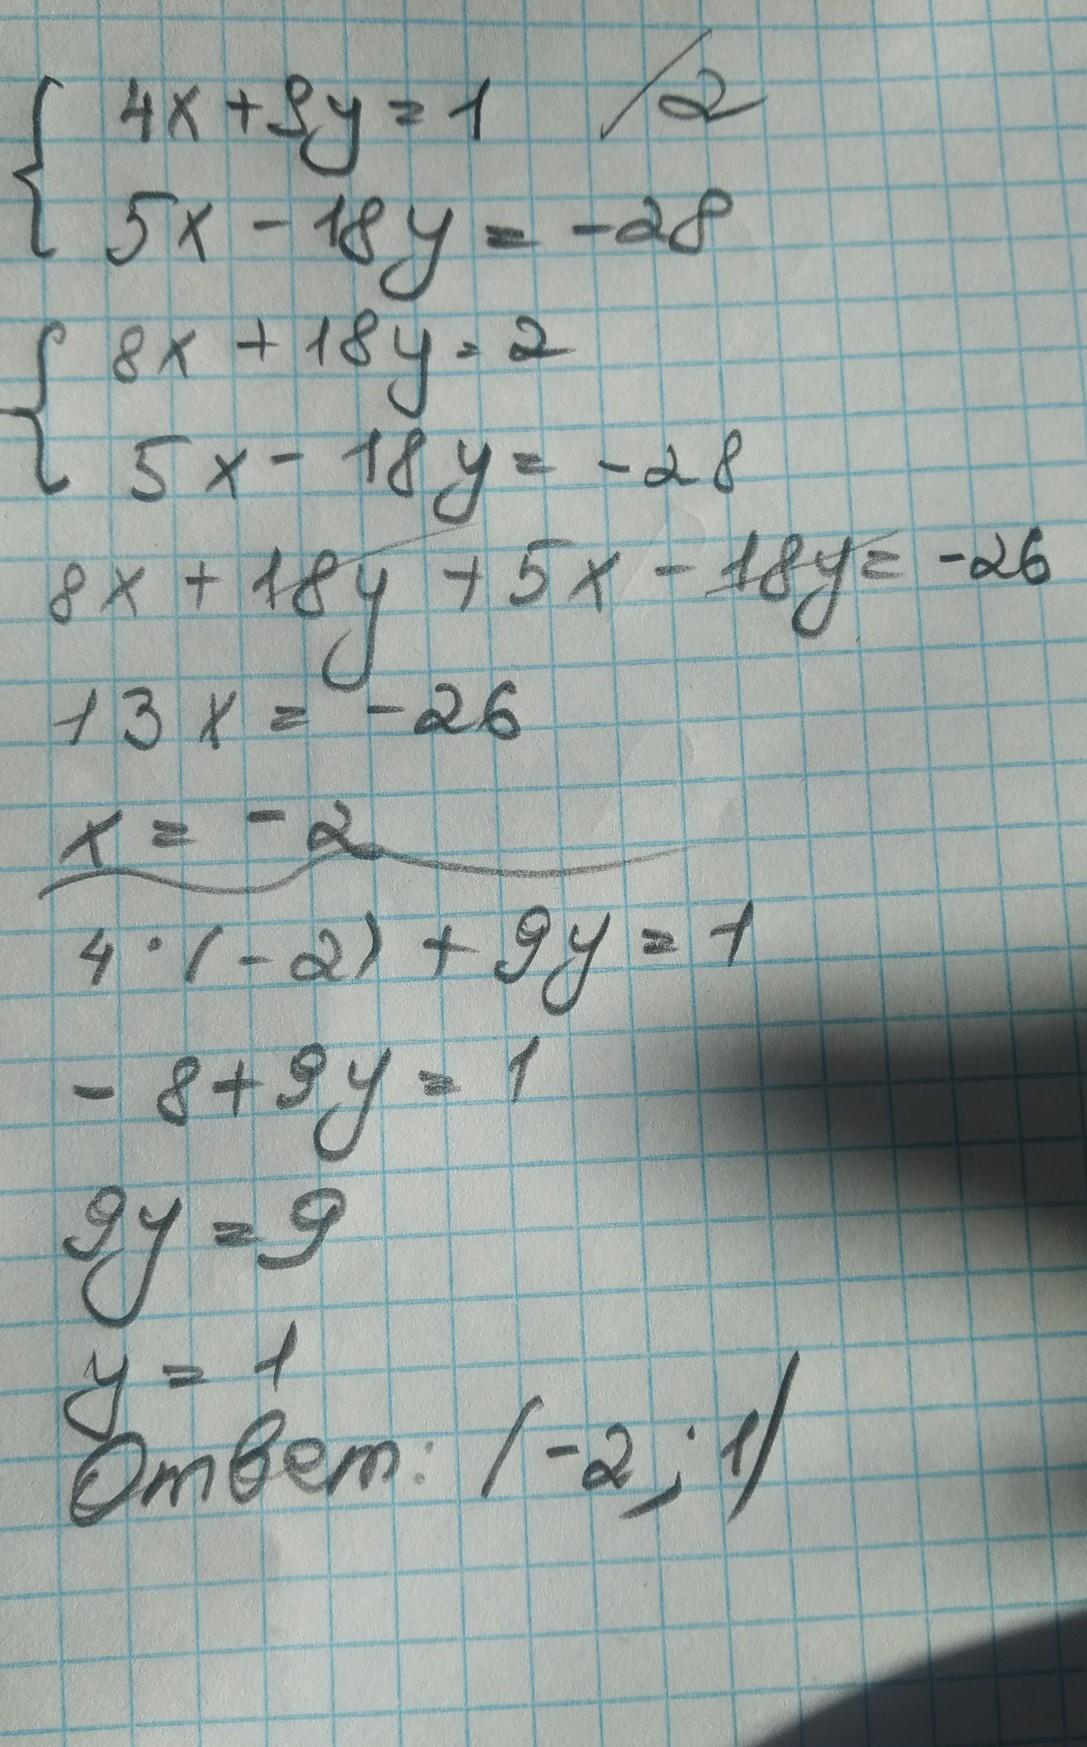 4x + 9y = 1 /2
5x - 18y = -28
8x + 18y = 2
5x - 18y = -28
8x + 18y + 5x - 18y = -26
13x = -26
x = -2
4·(-2) + 9y = 1
-8 + 9y = 1
9y = 9
y = 1
Ответ: (-2; 1)